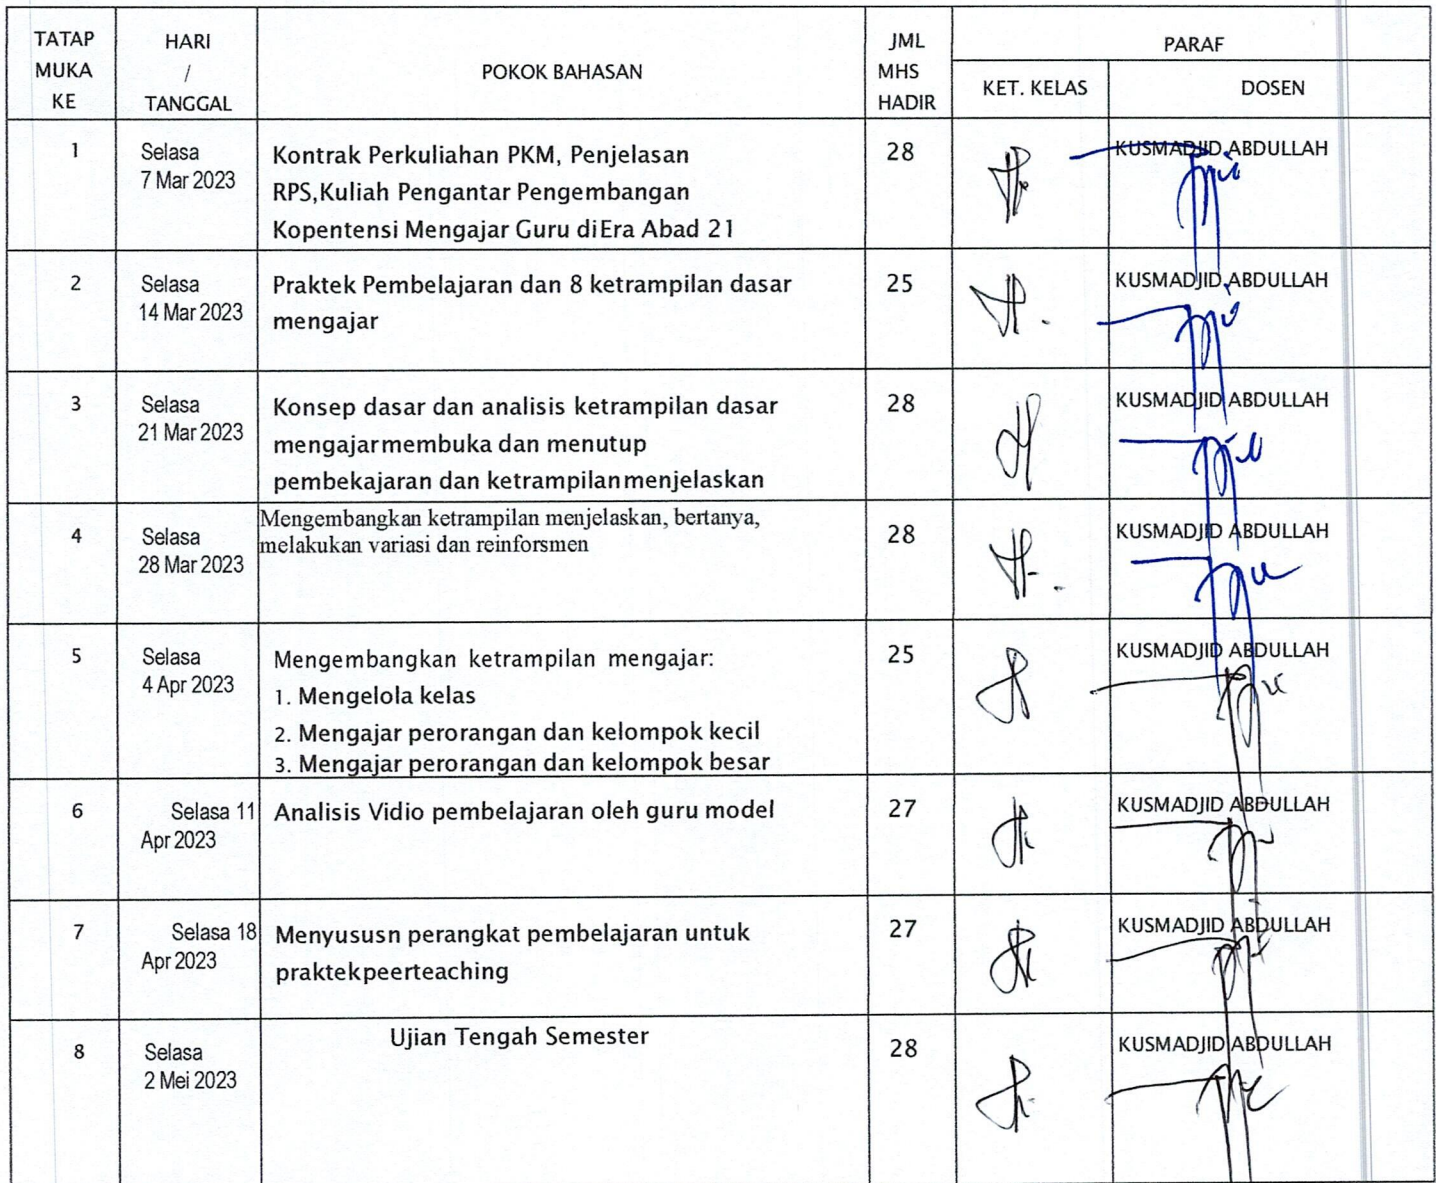 TATAP MUKA KE
HARI / TANGGAL
POKOK BAHASAN
JML MHS HADIR
PARAF
KET. KELAS
DOSEN
1
Selasa
7 Mar 2023
Kontrak Perkuliahan PKM, Penjelasan
RPS,Kuliah Pengantar Pengembangan
Kopentensi Mengajar Guru diEra Abad 21
28
KUSMADJID ABDULLAH
2
Selasa
14 Mar 2023
Praktek Pembelajaran dan 8 ketrampilan dasar
mengajar
25
KUSMADJID ABDULLAH
3
Selasa
21 Mar 2023
Konsep dasar dan analisis ketrampilan dasar
mengajarmembuka dan menutup
pembekajaran dan ketrampilanmenjelaskan
28
KUSMADJID ABDULLAH
4
Selasa
28 Mar 2023
Mengembangkan ketrampilan menjelaskan, bertanya,
melakukan variasi dan reinforsmen
28
KUSMADJID ABDULLAH
5
Selasa
4 Apr 2023
Mengembangkan ketrampilan mengajar:
1. Mengelola kelas
2. Mengajar perorangan dan kelompok kecil
3. Mengajar perorangan dan kelompok besar
25
KUSMADJID ABDULLAH
6
Selasa 11
Apr 2023
Analisis Vidio pembelajaran oleh guru model
27
KUSMADJID ABDULLAH
7
Selasa 18
Apr 2023
Menyususn perangkat pembelajaran untuk
praktekpeerteaching
27
KUSMADJID ABDULLAH
8
Selasa
2 Mei 2023
Ujian Tengah Semester
28
KUSMADJID ABDULLAH